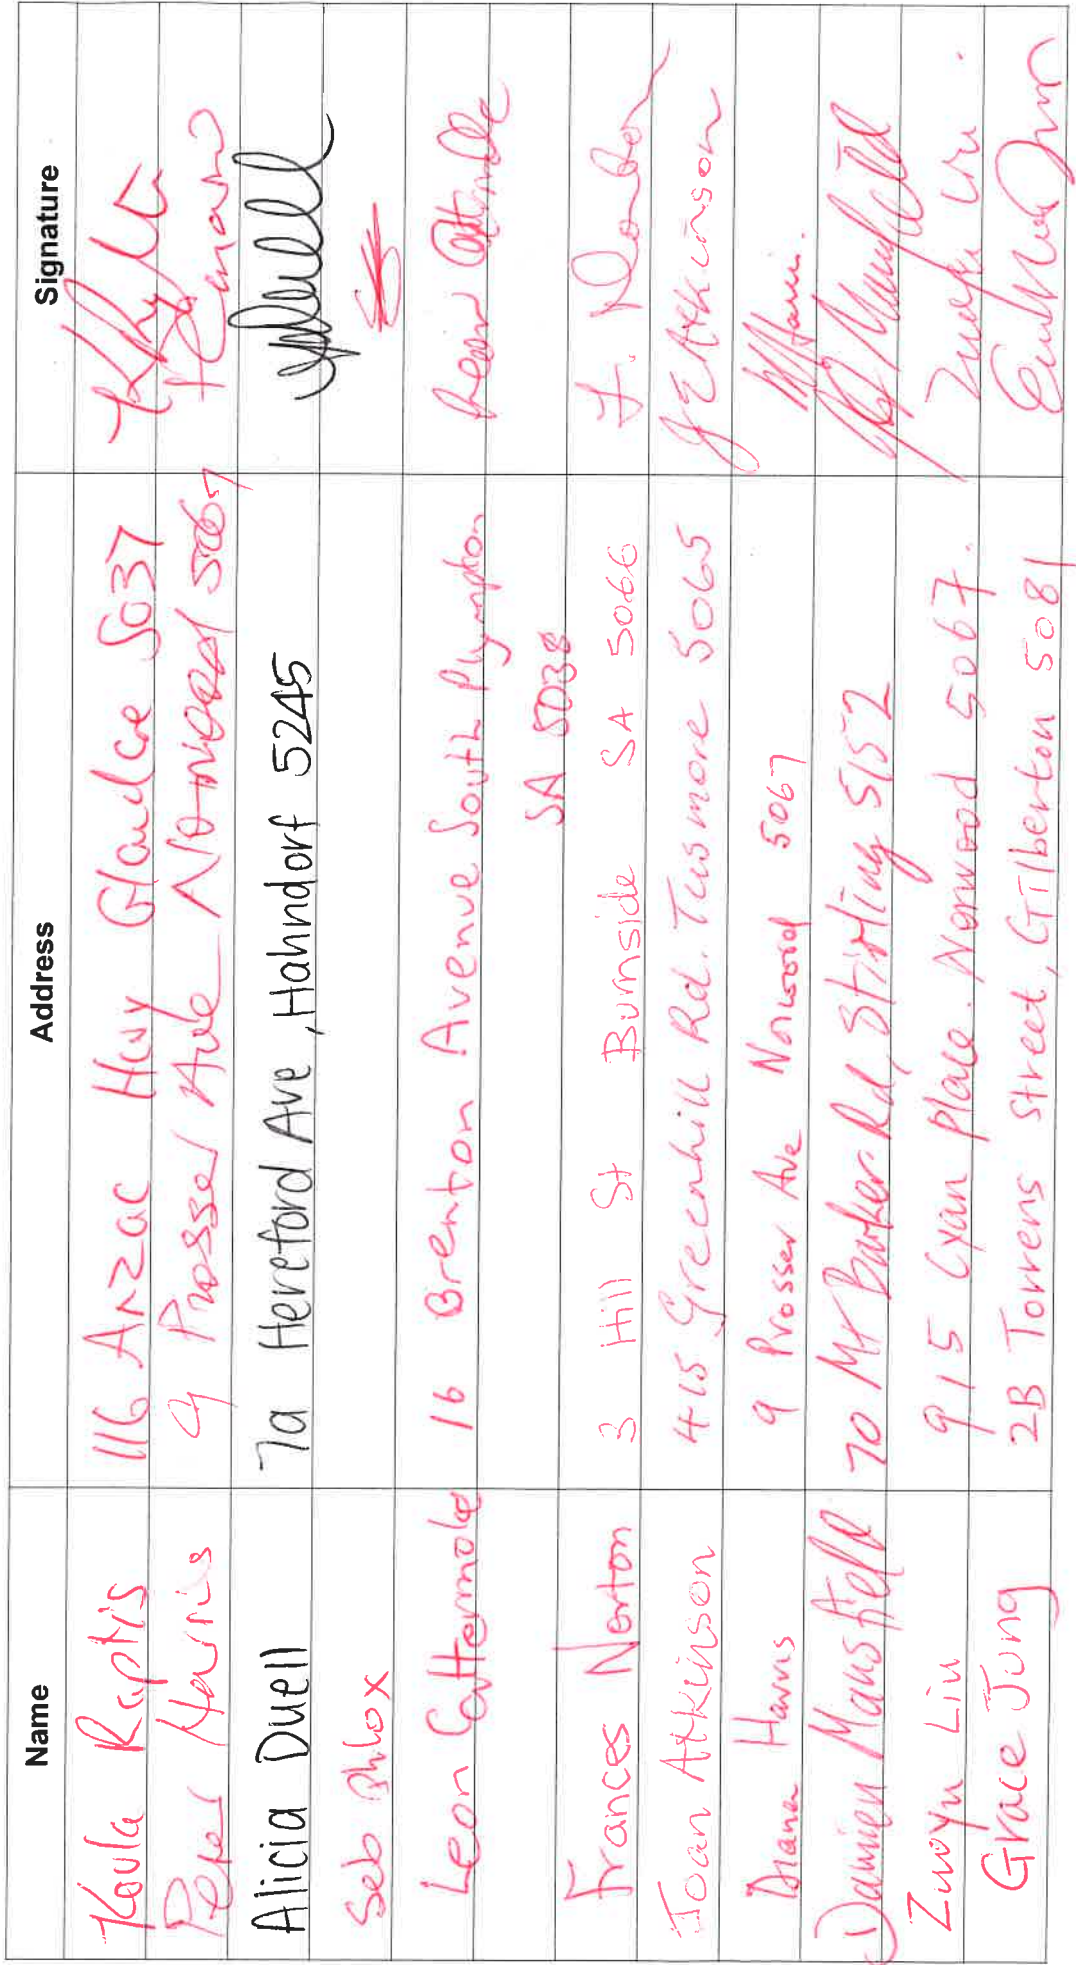 Name Address Signature
Koula Raptis 116 Anzac Hwy Glandore 5037
Peter Harris 9 Prosser Ave Norwood 5067
Alicia Duell 7a Hereford Ave, Hahndorf 5245
Seb Phlox
Leon Cattermole 16 Brenton Avenue South Plympton Leon Cattermole
SA 5038
Frances Norton 3 Hill St Burnside SA 5066 F. Norton
Joan Atkinson 415 Greenhill Rd. Tusmore 5065 J E Atkinson
Diana Harris 9 Prosser Ave Norwood 5067
Damien Mansfield 70 Mt Barker Rd, Stirling 5152
Ziwoyu Liu 9 15 Cyan Place. Norwood 5067.
Grace Jung 2B Torrens Street, Gilberton 5081